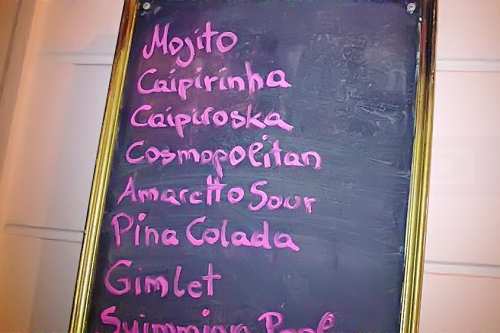 Mojito
Caipirinha
Caipiroska
Cosmopolitan
Amaretto Sour
Pina Colada
Gimlet
Swimming Pool